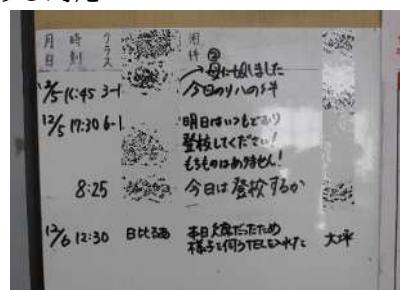 月日 時刻 クラス 用件
②
母に切しました
12/5 16:45 3-1 今日のリハの件
12/5 17:30 6-1 明日はいつもどおり
登校してください!
もちものはありません!
8:25 今日は登校するか
12/6 12:30 日比谷 本日欠席だったため
様子を伺うTELを入れた 大坪